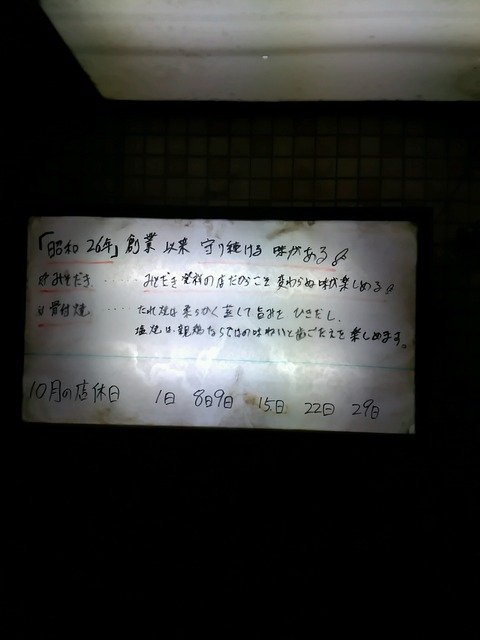 「昭和26年」創業以来 守り続ける 味がある
みそだき ‥‥‥ みそだき発祥の店だからこそ 変わらぬ味が楽しめる。
骨付焼 ‥‥‥ たれ焼は柔らかく蒸して旨みを ひきだし、
塩焼は、親鶏ならではの味わいと歯ごたえを楽しめます。
10月の店休日 1日 8日9日 15日 22日 29日